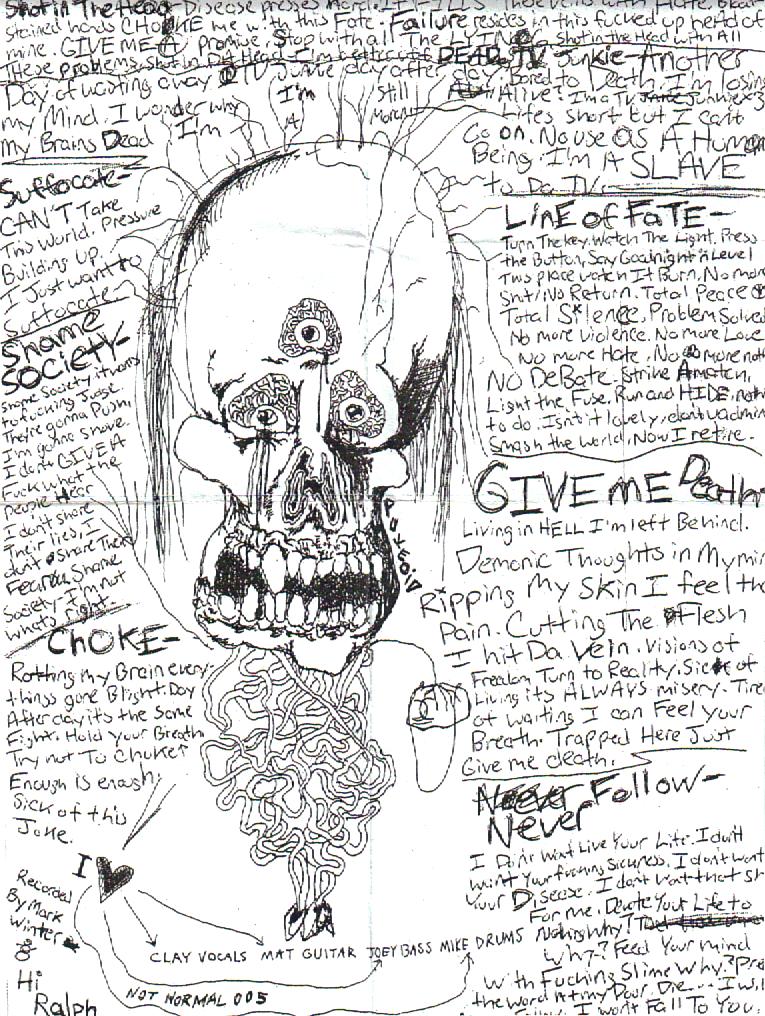 Shot in The Head- Disease presses
stained hands CHOKE me with this Fate. Failure resides in this fucked up head of
mine. GIVE ME A promise. Stop with all The LYING. Shot in the Head with All
These problems. Shot in
DEAD TV Junkie- Another
Day of wasting away TV Junkie day after day. Bored to Death. I'm losing
my Mind. I wonder why I'm Still Alive? I'm a TV Junkie
my Brains Dead. I'm A Moron
Lifes short but I can't
Go on. No use as A Human
Being. I'm A SLAVE
to Da TV.
Suffocate-
CAN'T Take
This World. Pressure
Building Up.
I Just want to
Suffocate.
Shame
SOCIETY-
Shame Society
to fucking Judge.
They're gonna Push
I'm gonna Shove.
I don't GIVE A
Fuck what the
people Hear
I don't share
Their lies, I
don't share Their
Fear Shame
Society I'm not
whats right.
CHOKE-
Rotting my Brain every
things gone Blight. Day
After day its the Same
Fight. Hold your Breath
Try not To Choke
Enough is enough.
Sick of this
Joke.
LINE OF FATE-
Turn The key. Watch The Light. Press
the Button, Say Goodnight n Level
This place watch It Burn. No more
Shit/No Return. Total Peace
Total Silence. Problem Solved
No more Violence. No more Love
No more Hate. No more
NO DEBATE. Strike A match,
Light the Fuse. Run and HIDE,
to do. Isn't it lovely, don't u
Smash the world, Now I retire.
GIVE ME Death-
Living in HELL I'm left Behind.
Demonic Thoughts in My
Ripping My Skin I feel the
Pain. Cutting The Flesh
I hit Da Vein. Visions of
Freedom Turn to Reality. Sick of
Living its ALWAYS misery. Tired
of waiting I can Feel your
Breath. Trapped Here Just
Give me death.
POXEOID
Never Follow-
Never
I Don't Want Live Your Life. I don't
want Your fucking Sickness. I don't want
Your Disease. I don't want that
For me. Devote Your Life to
Nothing Why?
Why? Feed Your mind
with Fucking Slime Why?
the word At my Door. Die... I
Follow. I won't Fall To You.
I ♥
CLAY VOCALS MAT GUITAR JOEY BASS MIKE DRUMS
Recorded
By Mark
Winter
&
Hi
Ralph
NOT NORMAL 005